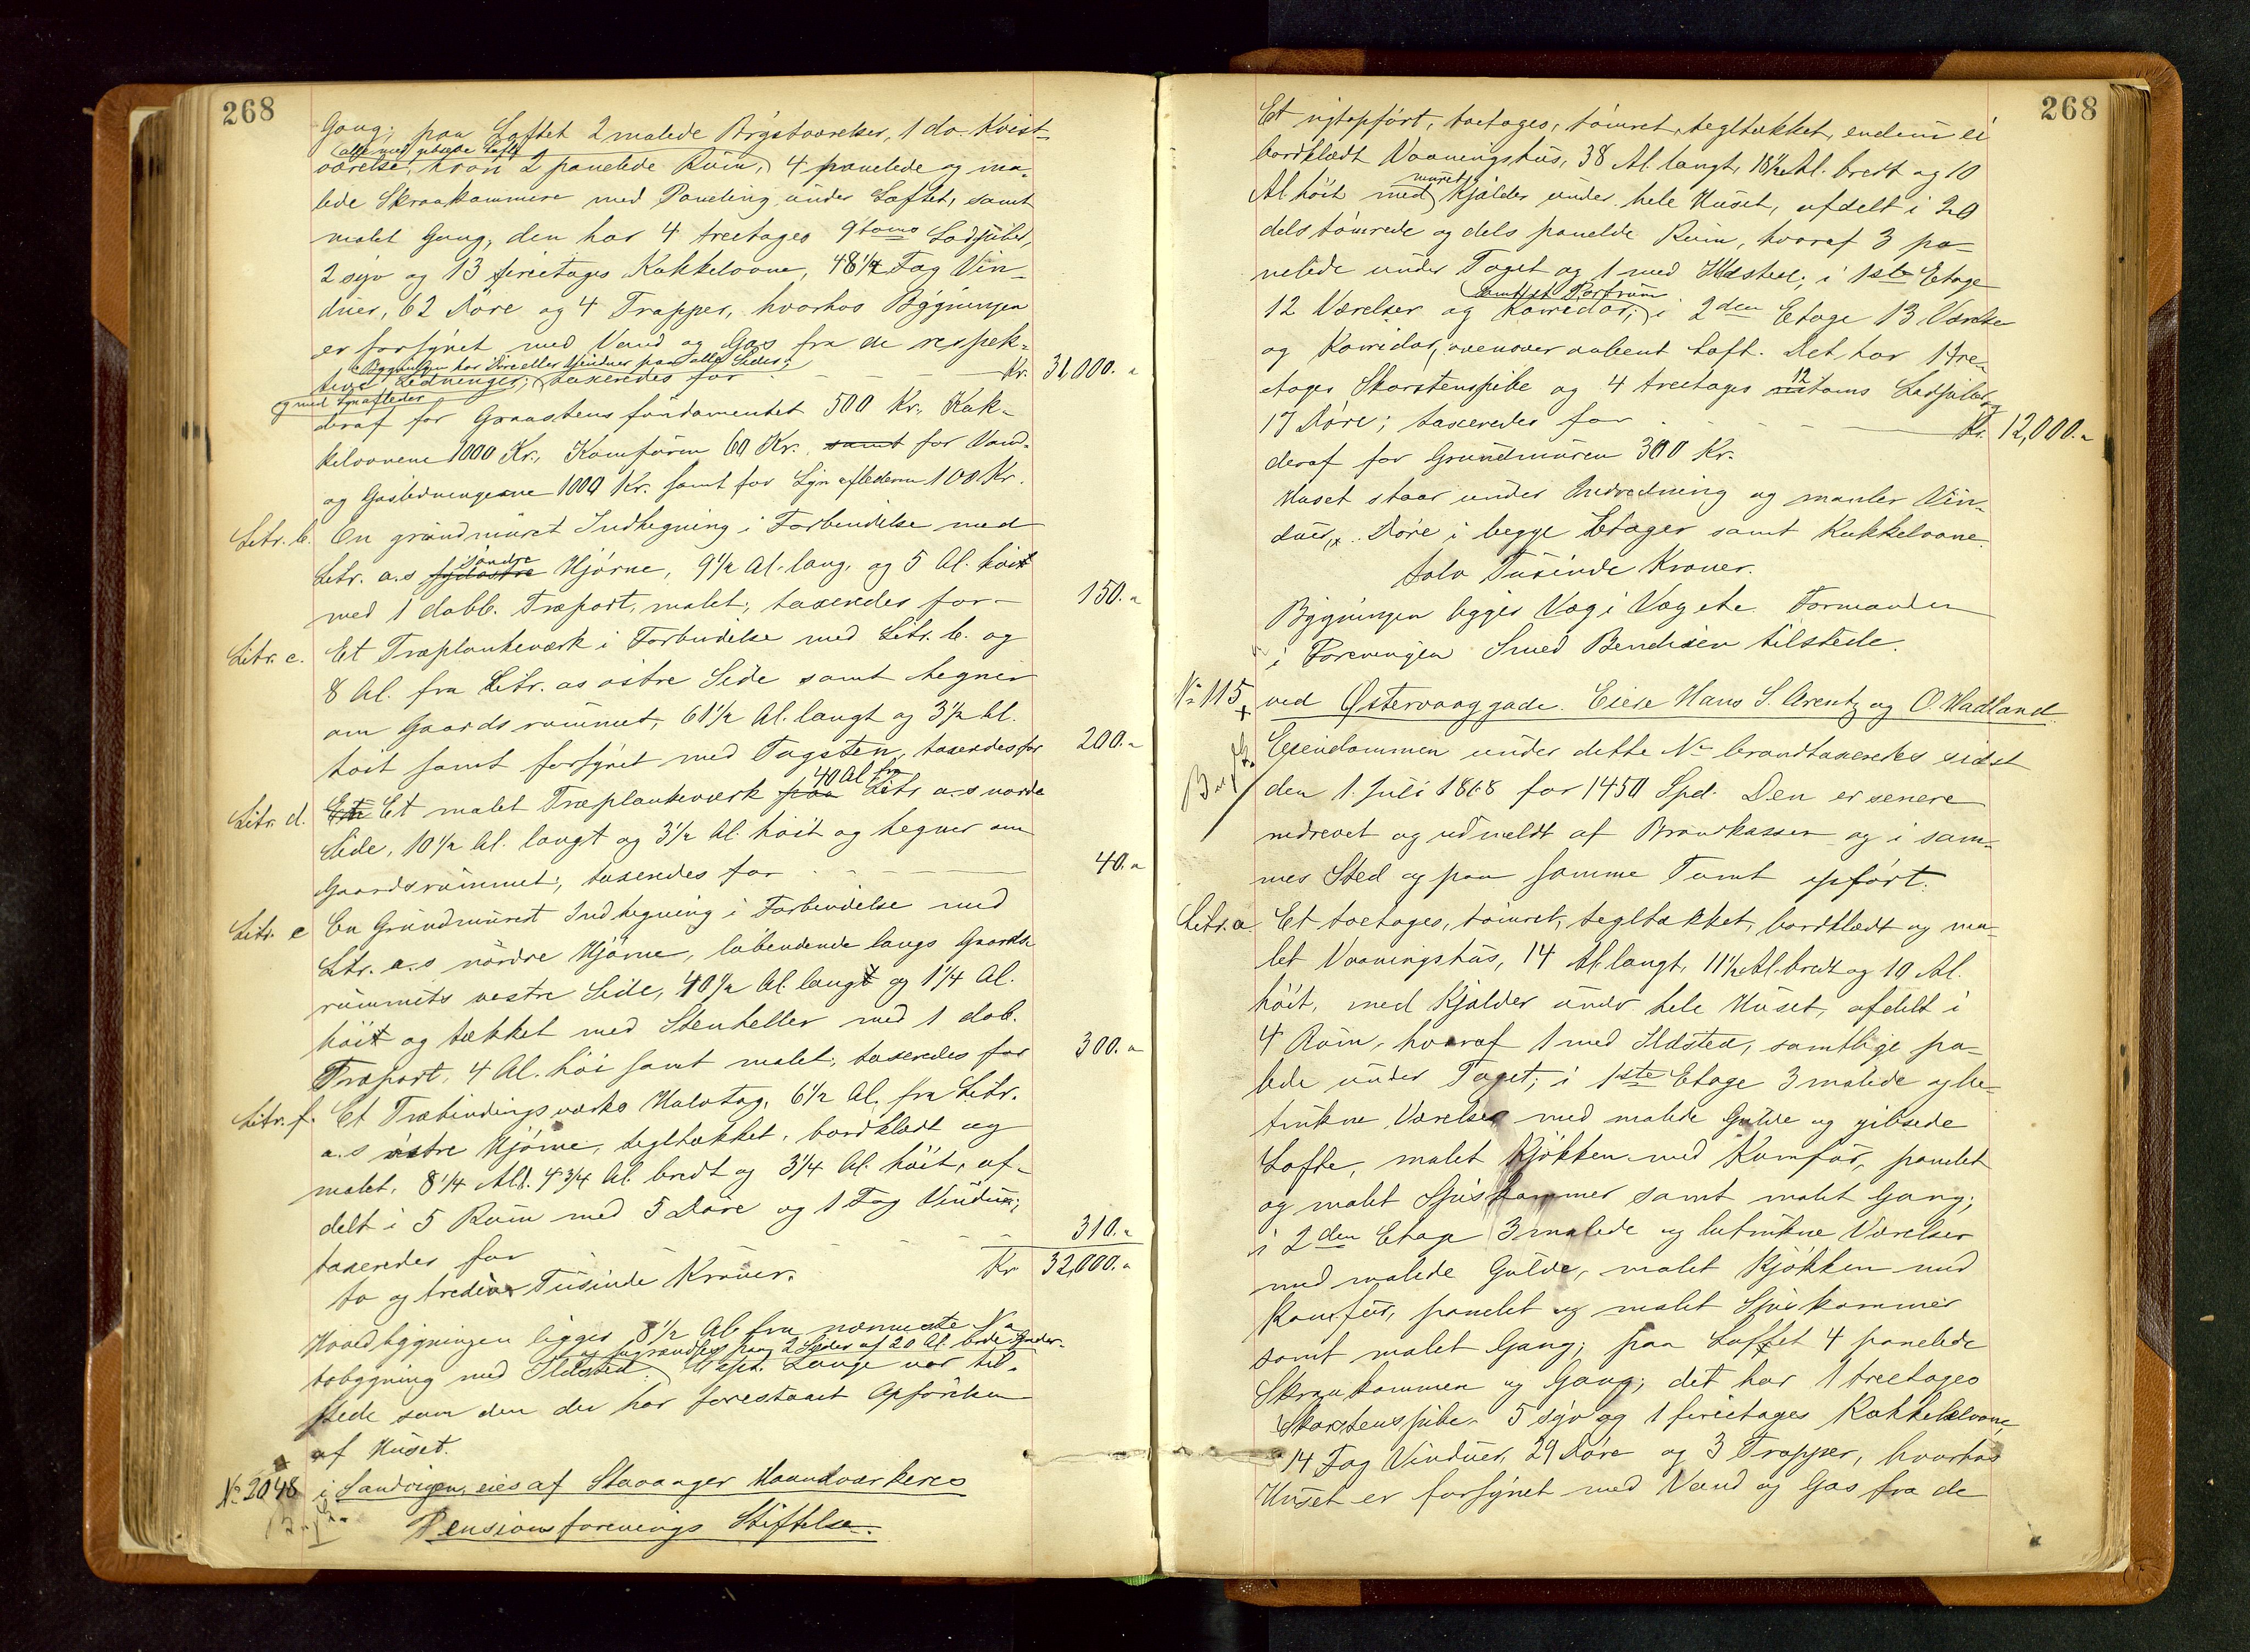 268
Gang; paa Loftet 2 malede Brystværelser, 1 do. Kvist-
alle med gibsede Lofte
værelse, hvori 2 panelede Rum, 4 panelede og ma-
lede Skraakammere med Paneling under Loftet, samt
malet Gang; den har 4 treetages 9toms Lodpiber,
2 syv og 13 fireetages Kakkelovne, 48 1/4 Fag Vin-
duer, 62 Döre og 4 Trapper, hvorhos Bygningen
er forsynet med Vand og Gas fra de respek-
Bygningen har Döre eller Vinduer paa alle Sider,
tive Ledninger; taxeredes for Kr. 31,000.-
og med Lynafleder
deraf for Graastensfundamentet 500 Kr., Kak-
kelovnene 1000 Kr., Komfuren 60 Kr. samt for Vand-
og Gasledningerne 1000 Kr. samt for Lynaflederen 100 Kr.
Litr. b. En grundmuret Indhegning i Forbindelse med
Söndre
Litr. a.s sydöstre Hjörne, 9 1/2 Al. lang, og 5 Al. höit
med 1 dobb. Træport, malet; taxeredes for 150.-
Litr. c. Et Træplankeværk i Forbindelse med Litr. b. og
8 Al. fra Litr. as östre Side samt hegner
om Gaardsrummet, 61 1/2 Al. langt og 3 1/2 Al.
höit samt forsynet med Tagsten, taxeredes for 200.-
40 Al fra
Litr. d. Et malet Træplankeværk paa Litr a.s nordre
Side, 10 1/2 Al. langt og 3 1/2 Al. höit og hegner om
Gaardsrummet; taxeredes for 40.-
Litr. e En Grundmuret Indhegning i Forbindelse med
Litr. a.s nordre Hjörne, löbendende langs Gaards-
rummets vestre Side, 40 1/2 Al. langt og 1 1/4 Al.
höit og tækket med Stenheller med 1 dob.
Træport, 4 Al. höi samt malet; taxeredes for 300.-
Litr. f. Et Træbindingsværks Halvtag, 6 1/2 Al. fra Litr.
a.s östre Hjörne, tegltækket, bordklædt og
malet, 8 1/4 Al. 4 3/4 Al. bredt og 3 1/4 Al. höit, af-
delt i 5 Rum med 5 Döre og 1 Fag Vinduer;
taxeredes for 310.-
to og tredive Tusinde Kroner. Kr 32,000.-
Hovedbygningen ligger 8 1/2 Al. fra nærmeste Na-
2 Sider af 20 Al. brede Gader.
bobygning med Ildsted. Capt. Lange var til-
stede som den der har forestaaet Opförelsen
af Huset.
No. 2048 i Sandvigen, eies af Stavanger Haandværkeres
Pensionsforenings Stiftelse.
268
Et nytopfört, toetages, tömret, tegltækket, endnu ei
bordklædt Vaaningshus, 38 Al. langt, 18 1/2 Al. bredt og 10
muret
Al höit med Kjælder under hele Huset, afdelt i 20
dels tömrede og dels panelde Rum, hvoraf 3 pa-
nelede under Taget og 1 med Ildsted; i 1ste Etage
samt et Portrum
12 Værelser og Korridor; i 2den Etage 13 Værelser
og Korridor, ovenover aabent Loft. Det har 1 tre-
12
etages Skorstenspibe og 4 treetages toms Lodpiber og
17 Döre; taxeredes for Kr. 12,000.-
deraf for Grundmuren 300 Kr.
Huset staar under Indredning og manler Vin-
duer, Döre i begge Etager samt Kakkelovne.
tolv Tusinde Kroner.
Bygningen ligger Væg i Væg etc. Formanden
i Foreningen Smed Bendixen tilstede.
No 115 ved Østervaaggade. Eiere Hans S. Arentz og O. Hadland.
Eiendommen under dette No brandtaxeredes sidst
den 1. Juli 1868 for 1450 Spd. Den er senere
nedrevet og udmeldt af Brandkassen og i sam-
mes Sted og paa samme Tomt opfört.
Litr. a Et toetages, tömret, tegltækket, bordklædt og ma-
let Vaaningshus, 14 Al. langt, 11 1/2 Al. bredt og 10 Al.
höit, med Kjælder under hele Huset, afdelt i
4 Rum, hvoraf 1 med Ildsted, samtlige pa-
lede under Taget; i 1ste Etage 3 malede og be-
trukne Værelser med malede Gulve og gibsede
Lofte, malet Kjökken med Komfur, panelet
og malet Spiskammer samt malet Gang;
i 2den Etage 3 malede og betrukne Værelser
med malede Gulve, malet Kjökken med
Komfur, panelet og malet Spiskammer
samt malet Gang; paa Loftet 4 panelede
Skraakammere og Gang; det har 1 treetages
Skorstenspibe, 5 syv og 1 fireetages Kakkelovne,
14 Fag Vinduer, 29 Döre og 3 Trapper, hvorhos
Huset er forsynet med Vand og Gas fra de